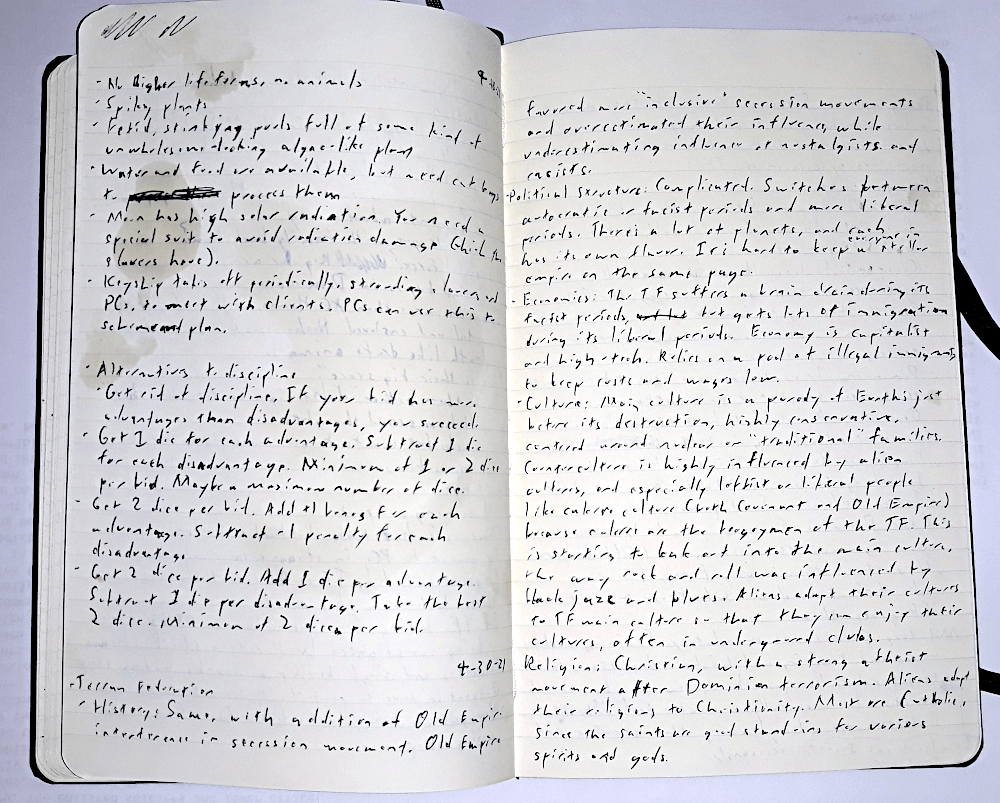 - No higher lifeforms, no animals
- Spiky plants
- Fetid, stinking pools full of some kind of
unwholesome looking algae-like plant
- Water and food are available, but need
to process them
- Moon has high solar radiation. You need a
special suit to avoid radiation damage (which the
slavers have).
- Keyship takes off periodically, stranding slavers and
PCs, to meet with clients. PCs can use this to
scheme and plan.
- Alternatives to discipline
- Get rid of discipline. If your bid has more
advantages than disadvantages, you succeed.
- Get 1 die for each advantage. Subtract 1 die
for each disadvantage. Minimum of 1 or 2 dice
per bid. Maybe a maximum number of dice.
- Get 2 dice per bid. Add +1 bonus for each
advantage. Subtract -1 penalty for each
disadvantage
- Get 2 dice per bid. Add 1 die per advantage.
Subtract 1 die per disadvantage. Take the best
2 dice. Minimum of 2 dice per bid.
4-30-21
- Terran Federation
- History: Same, with addition of Old Empire
interference in secession movement. Old Empire
favored more "inclusive" secession movements
and overestimated their influence, while
underestimating influence of nostalgists and
racists.
- Political Structure: Complicated. Switches between
autocratic or facist periods and more liberal
periods. There's a lot of planets, and each
has its own flavor. It's hard to keep everyone in a stellar
empire on the same page.
- Economics: The TF suffers a brain drain during its
facist periods, but gets lots of immigration
during its liberal periods. Economy is capitalist
and high-tech. Relies on a pool of illegal immigrants
to keep costs and wages low.
- Culture: Main culture is a parody of Earth's just
before its destruction, highly conservative,
centered around nuclear or "traditional" families.
Counterculture is highly influenced by alien
cultures, and especially leftist or liberal people
like culture (both Covenant and Old Empire)
because are the boogeymen of the TF. This
is starting to leak out into the main culture,
the way rock and roll was influenced by
black jazz and blues. Aliens adapt their cultures
to TF main culture so that they can enjoy their
cultures, often in underground clubs.
Religion: Christian, with a strong atheist
movement after Dominion terrorism. Aliens adapt
their religions to Christianity. Most are Catholic,
since the saints are good stand-ins for various
spirits and gods.